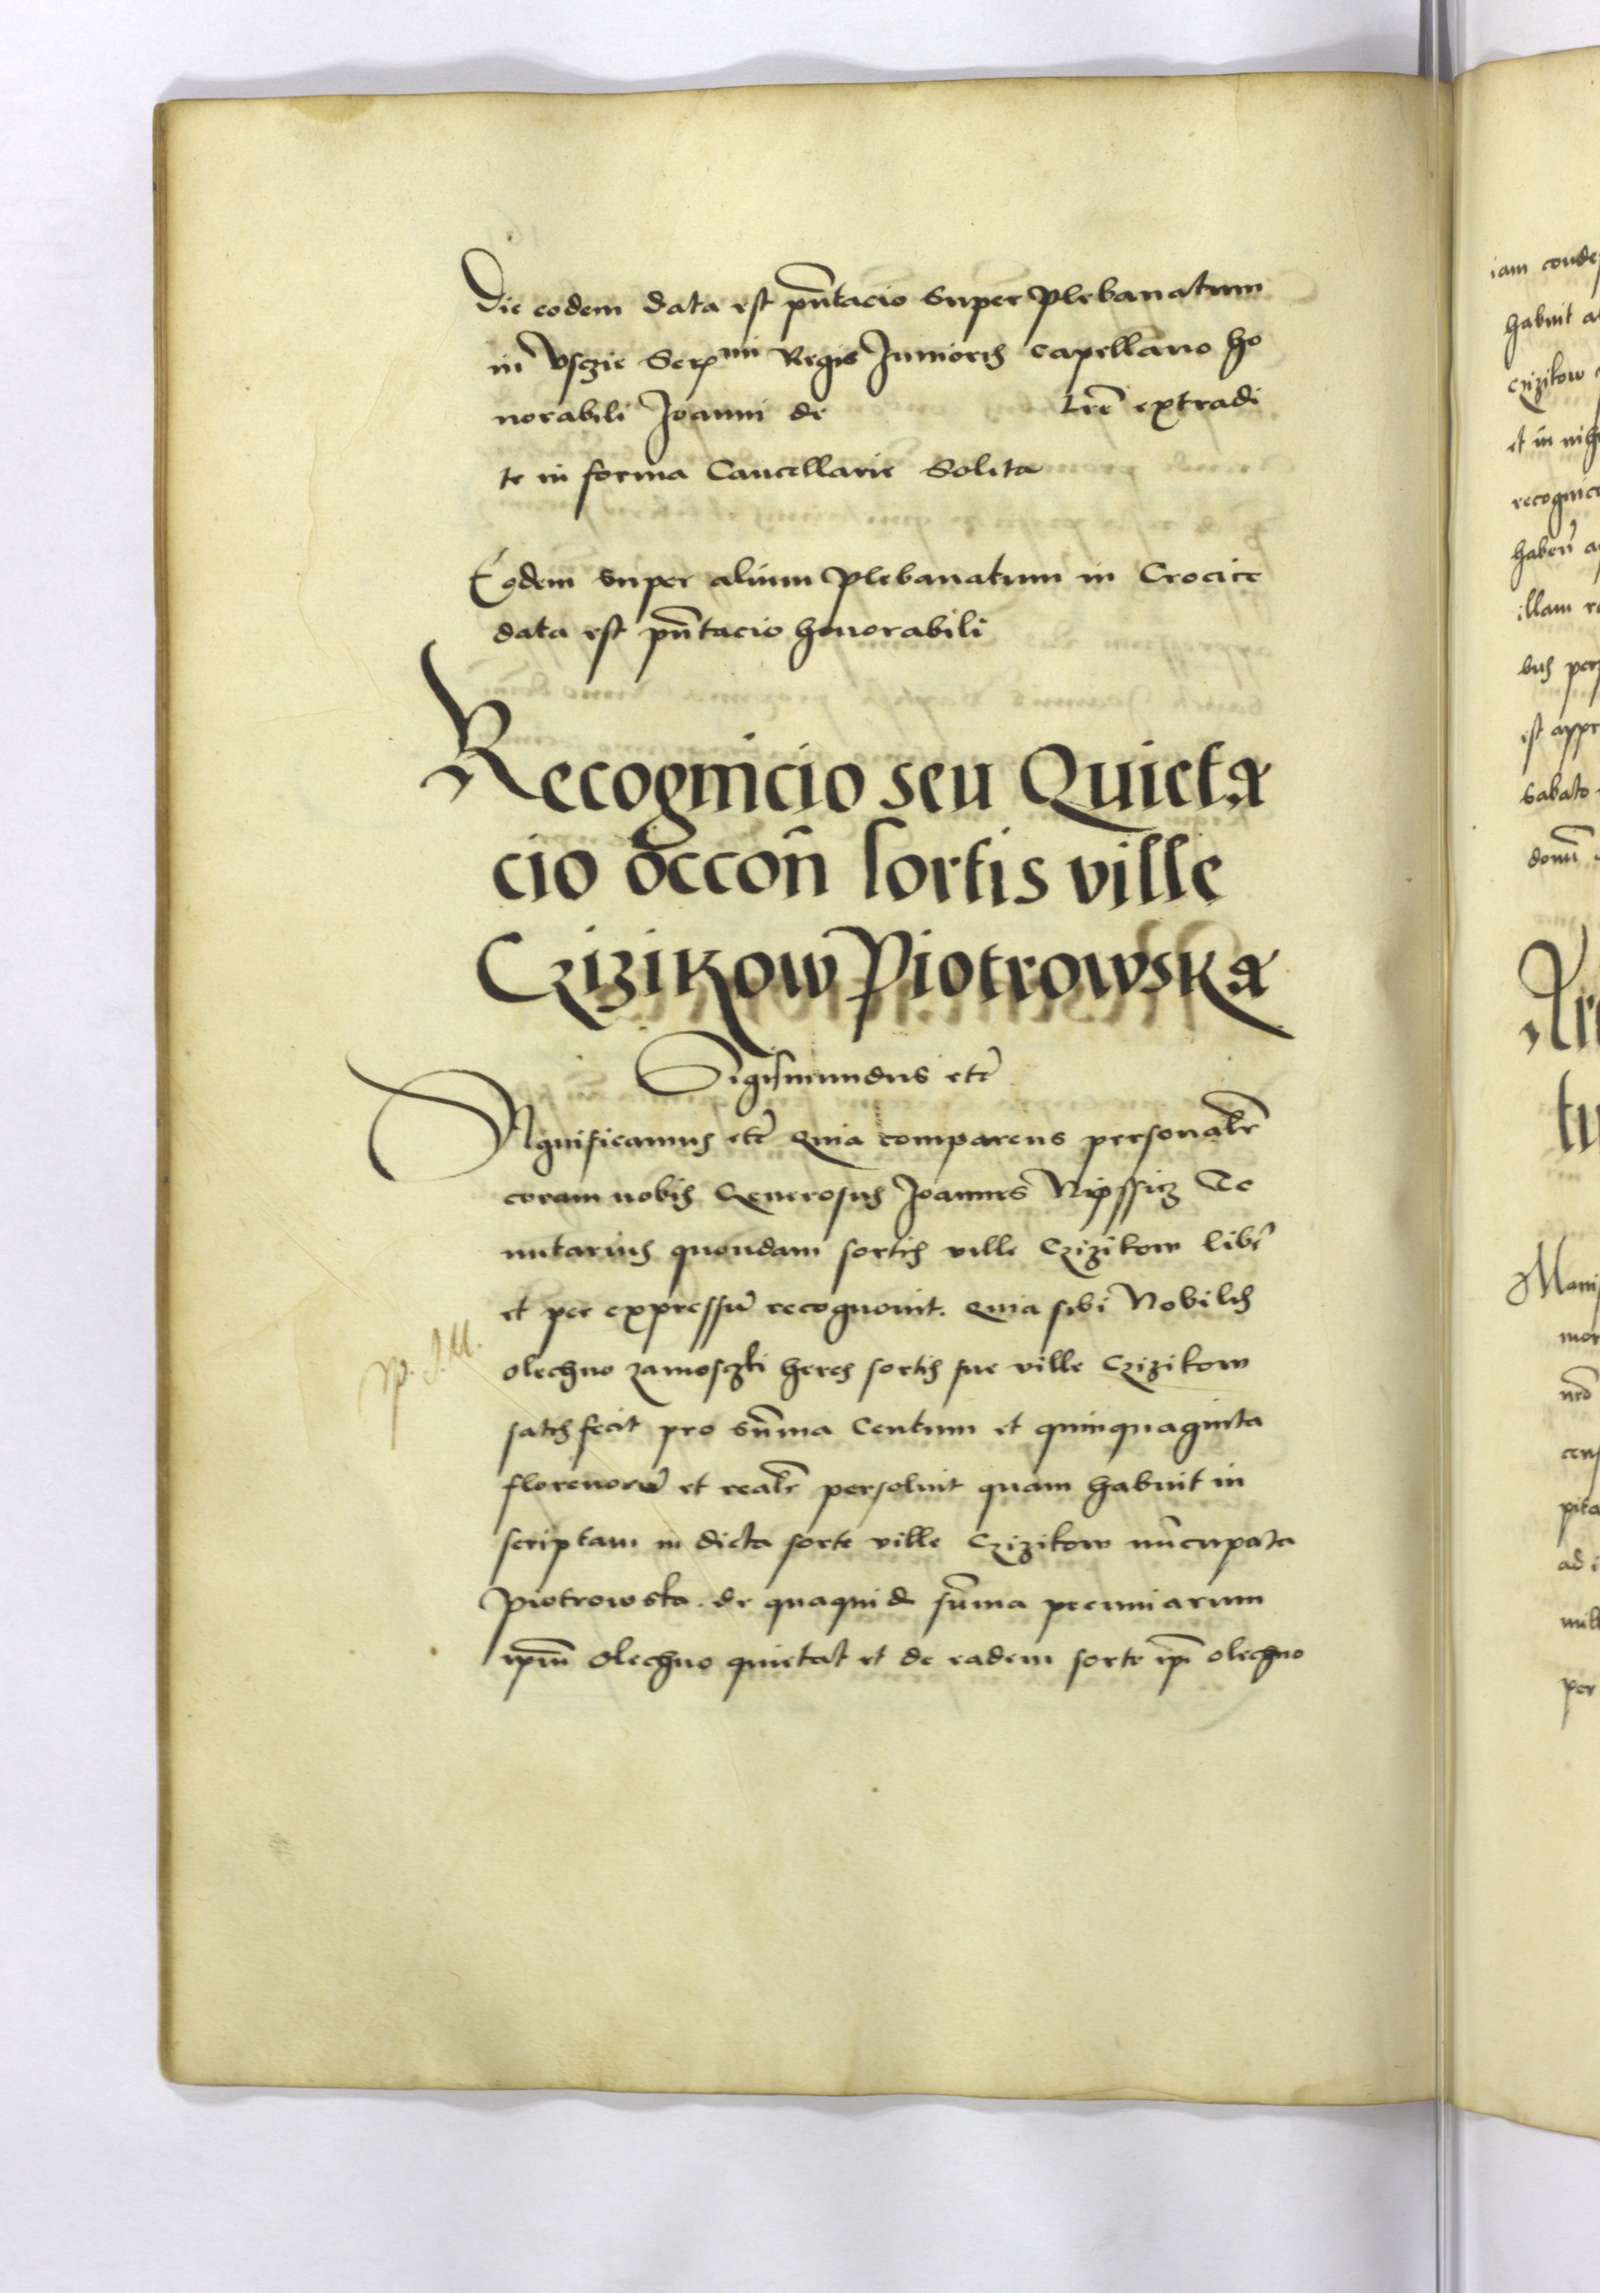 Die eodem data est pñtacio super plebanatum
in Vsczie Serᵐⁱ Regis Junioris capellano ho
norabili Joanni de lrẽ extradi
te in forma Cancellarie Solita
Eodem super alium plebanatum in Crocice
data est pñtacio honorabili
Recognicio seu Quieta
cio occoñ sortis ville
Czizikow Piotrowska
Sigismundus etc̃
Significamus etc̃ Quia comparens personalr̃
coram nobis Generosus Joannes Nipssicz Te
nutarius quondam sortis ville Czizikow libẽ
et per expressũ recognouit. Quia sibi Nobilis
olechno zamosczki heres sortis sue ville Czizikow
satisfecit pro sũma Centum et quinquaginta
florenorũ et realr̃ persoluit quam habuit in
scriptam in dicta sorte ville Czizikow nũcupata
Piotrowska. de quaquid sũma pecuniarum
ipm̃ Olechno quietat et de eadem sorte ip̃i olechno
iam
habuit
Czizikow
et in
illam
est
sabato
per